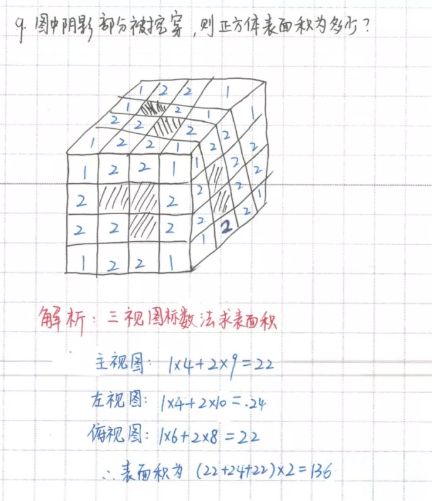 9. 图中阴影部分被挖穿,则正方体表面积为多少?
1 2 2 1
2 2 1
2 2 2
1 2 2 1
1 2 2 1
2 2
2 2 2
1 2 2 1
解析: 三视图标数法求表面积
主视图: 1×4+2×9=22
左视图: 1×4+2×10=.24
俯视图: 1×6+2×8=22
∴表面积为 (22+24+22)×2=136